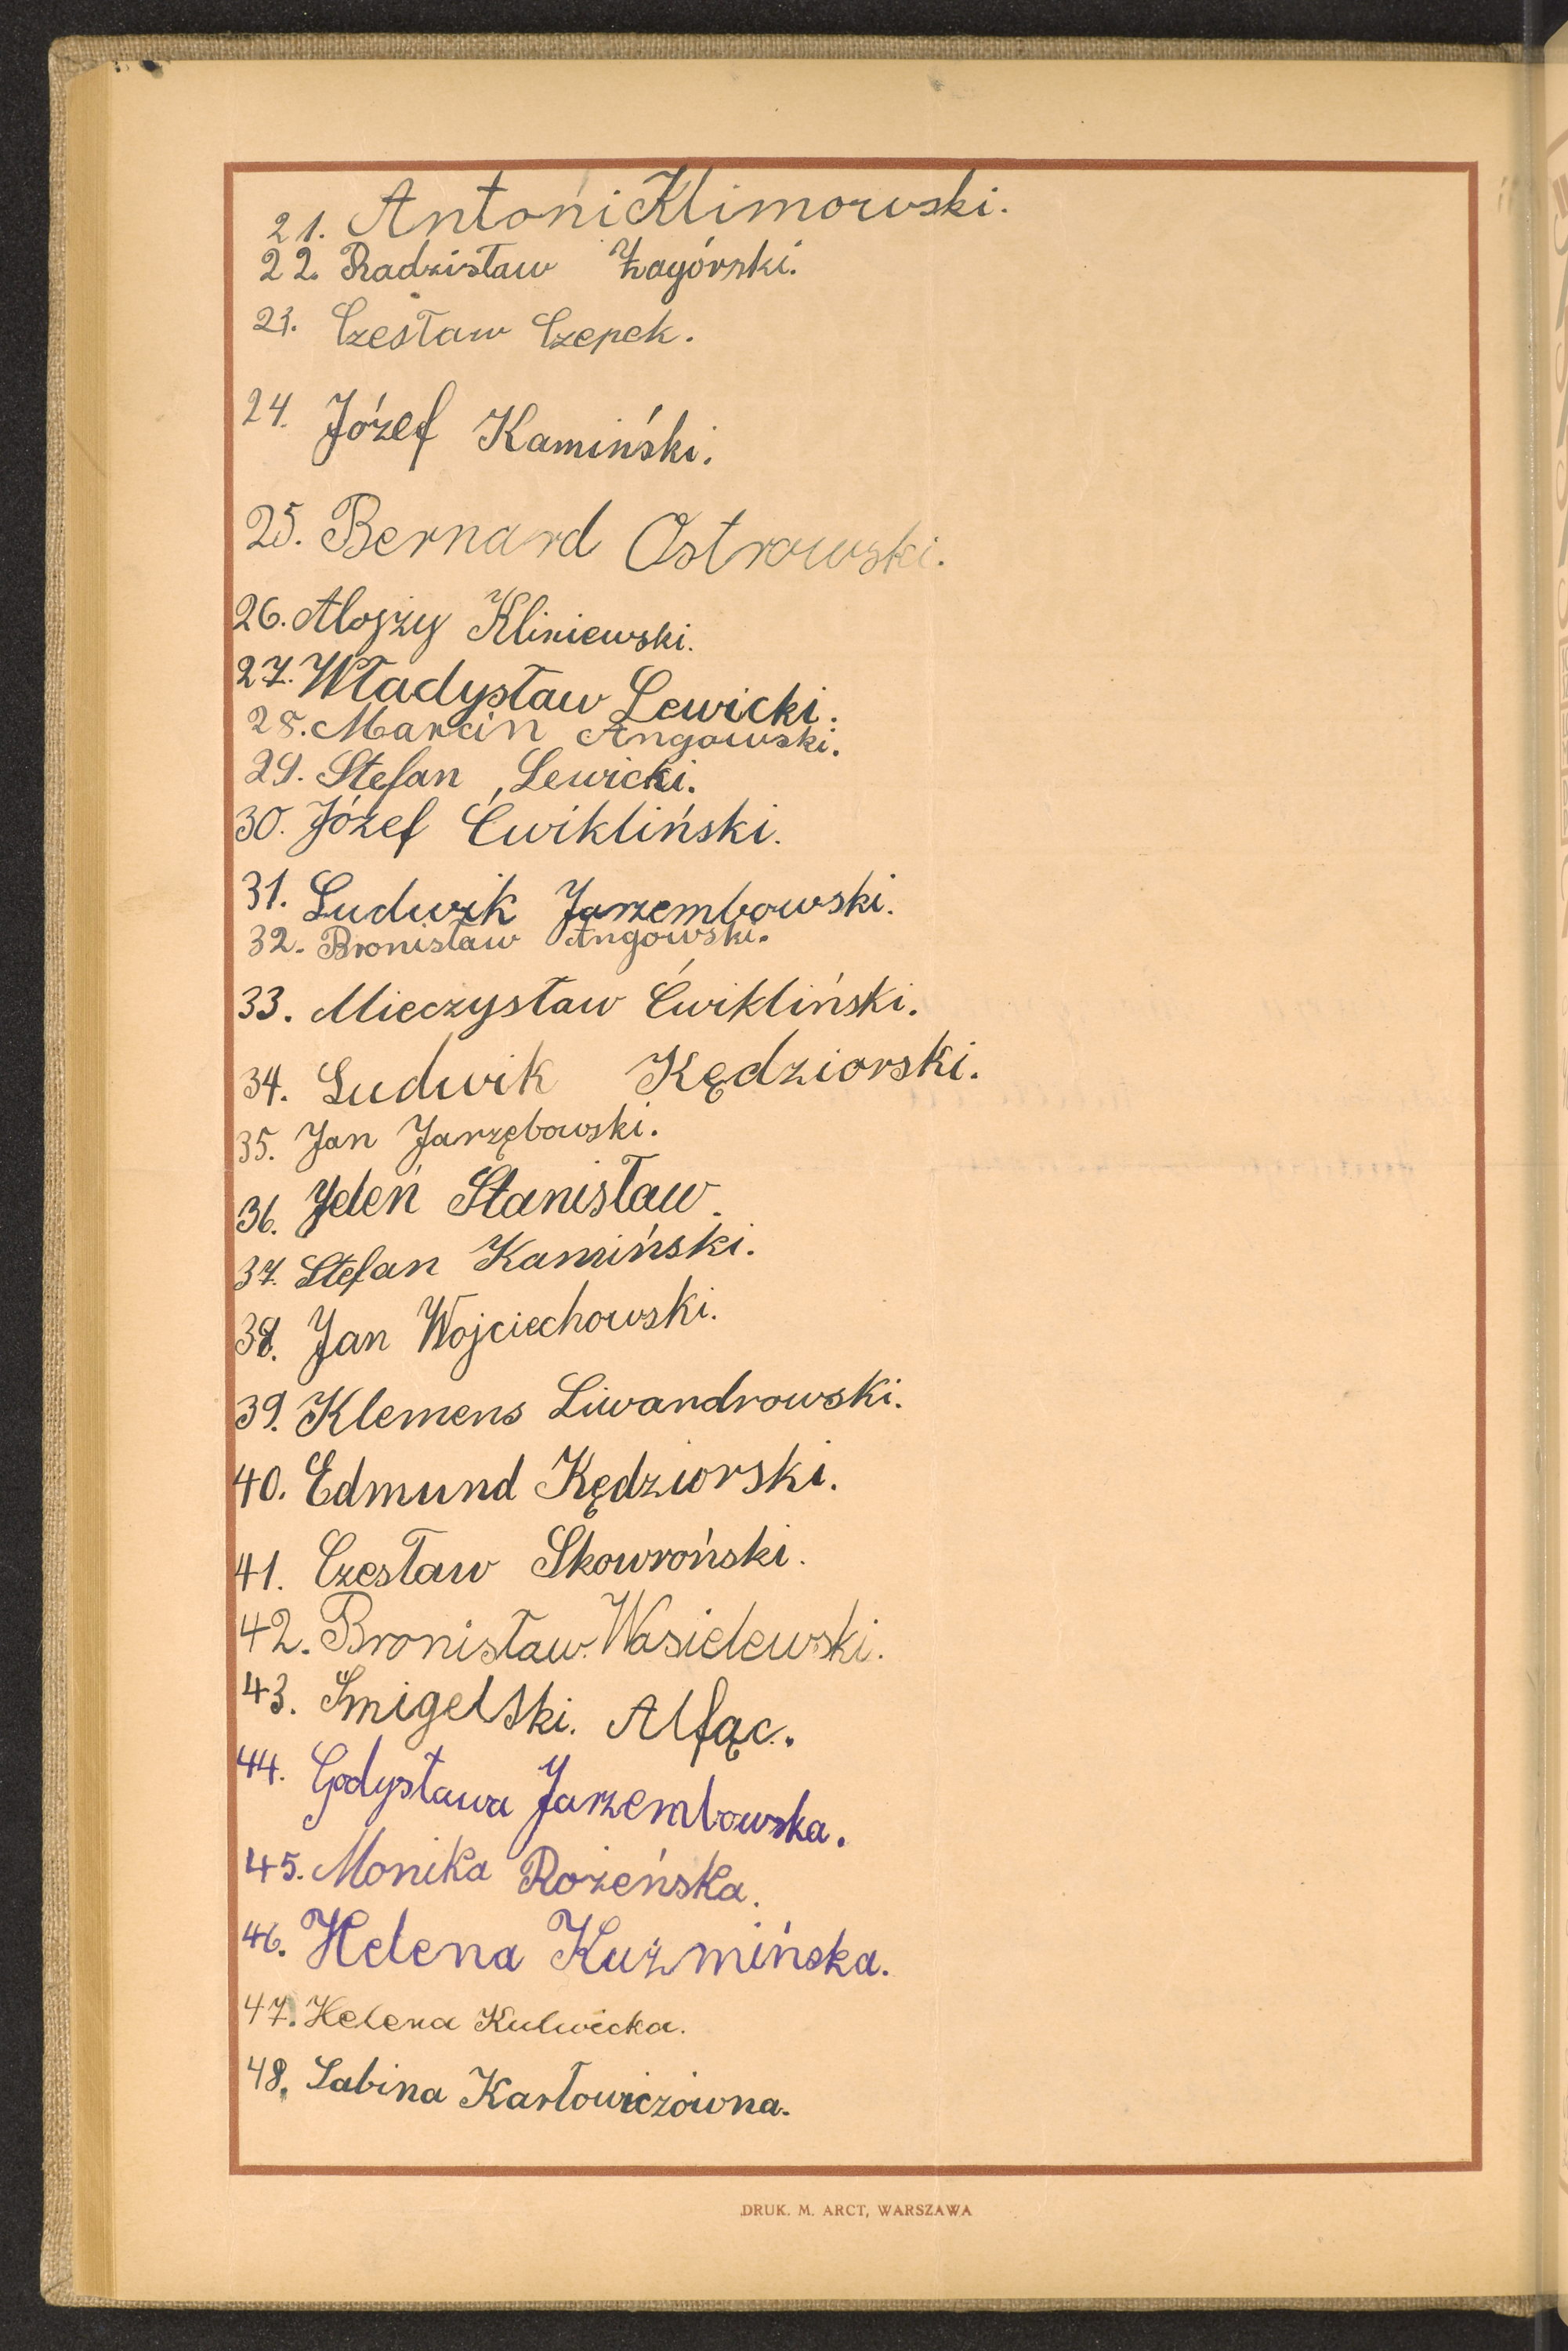 21. Antoni Klimorwski.
22. Radzisław Zagórski.
23. Czesław Czepek.
24. Józef Kamiński.
25. Bernard Ostrowski.
26. Alojzy Kliniewski.
27. Władysław Lewicki.
28. Marcin Angowski.
29. Stefan Lewicki.
30. Józef Ćwikliński.
31. Ludwik Jarzembowski.
32. Bronisław Angowski.
33. Mieczysław Ćwikliński.
34. Ludwik Kędziorski.
35. Jan Jarzębowski.
36. Jeleń Stanisław.
37. Stefan Kamiński.
38. Jan Wojciechowski.
39. Klemens Liwandrowski.
40. Edmund Kędziorski.
41. Czesław Skowroński.
42. Bronisław. Wasielewski.
43. Śmigelski. Alfąc.
44. Godysława Jarzembowska.
45. Monika Rożeńska.
46. Helena Kuźmińska.
47. Helena Kulwicka.
48. Sabina Karłowiczówna.
DRUK. M. ARCT, WARSZAWA